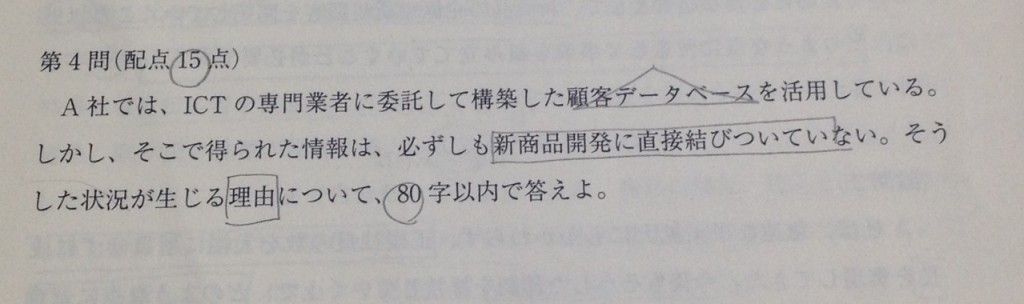 第4問(配点15点)
A社では、ICTの専門業者に委託して構築した顧客データベースを活用している。
しかし、そこで得られた情報は、必ずしも新商品開発に直接結びついていない。そう
した状況が生じる理由について、80字以内で答えよ。